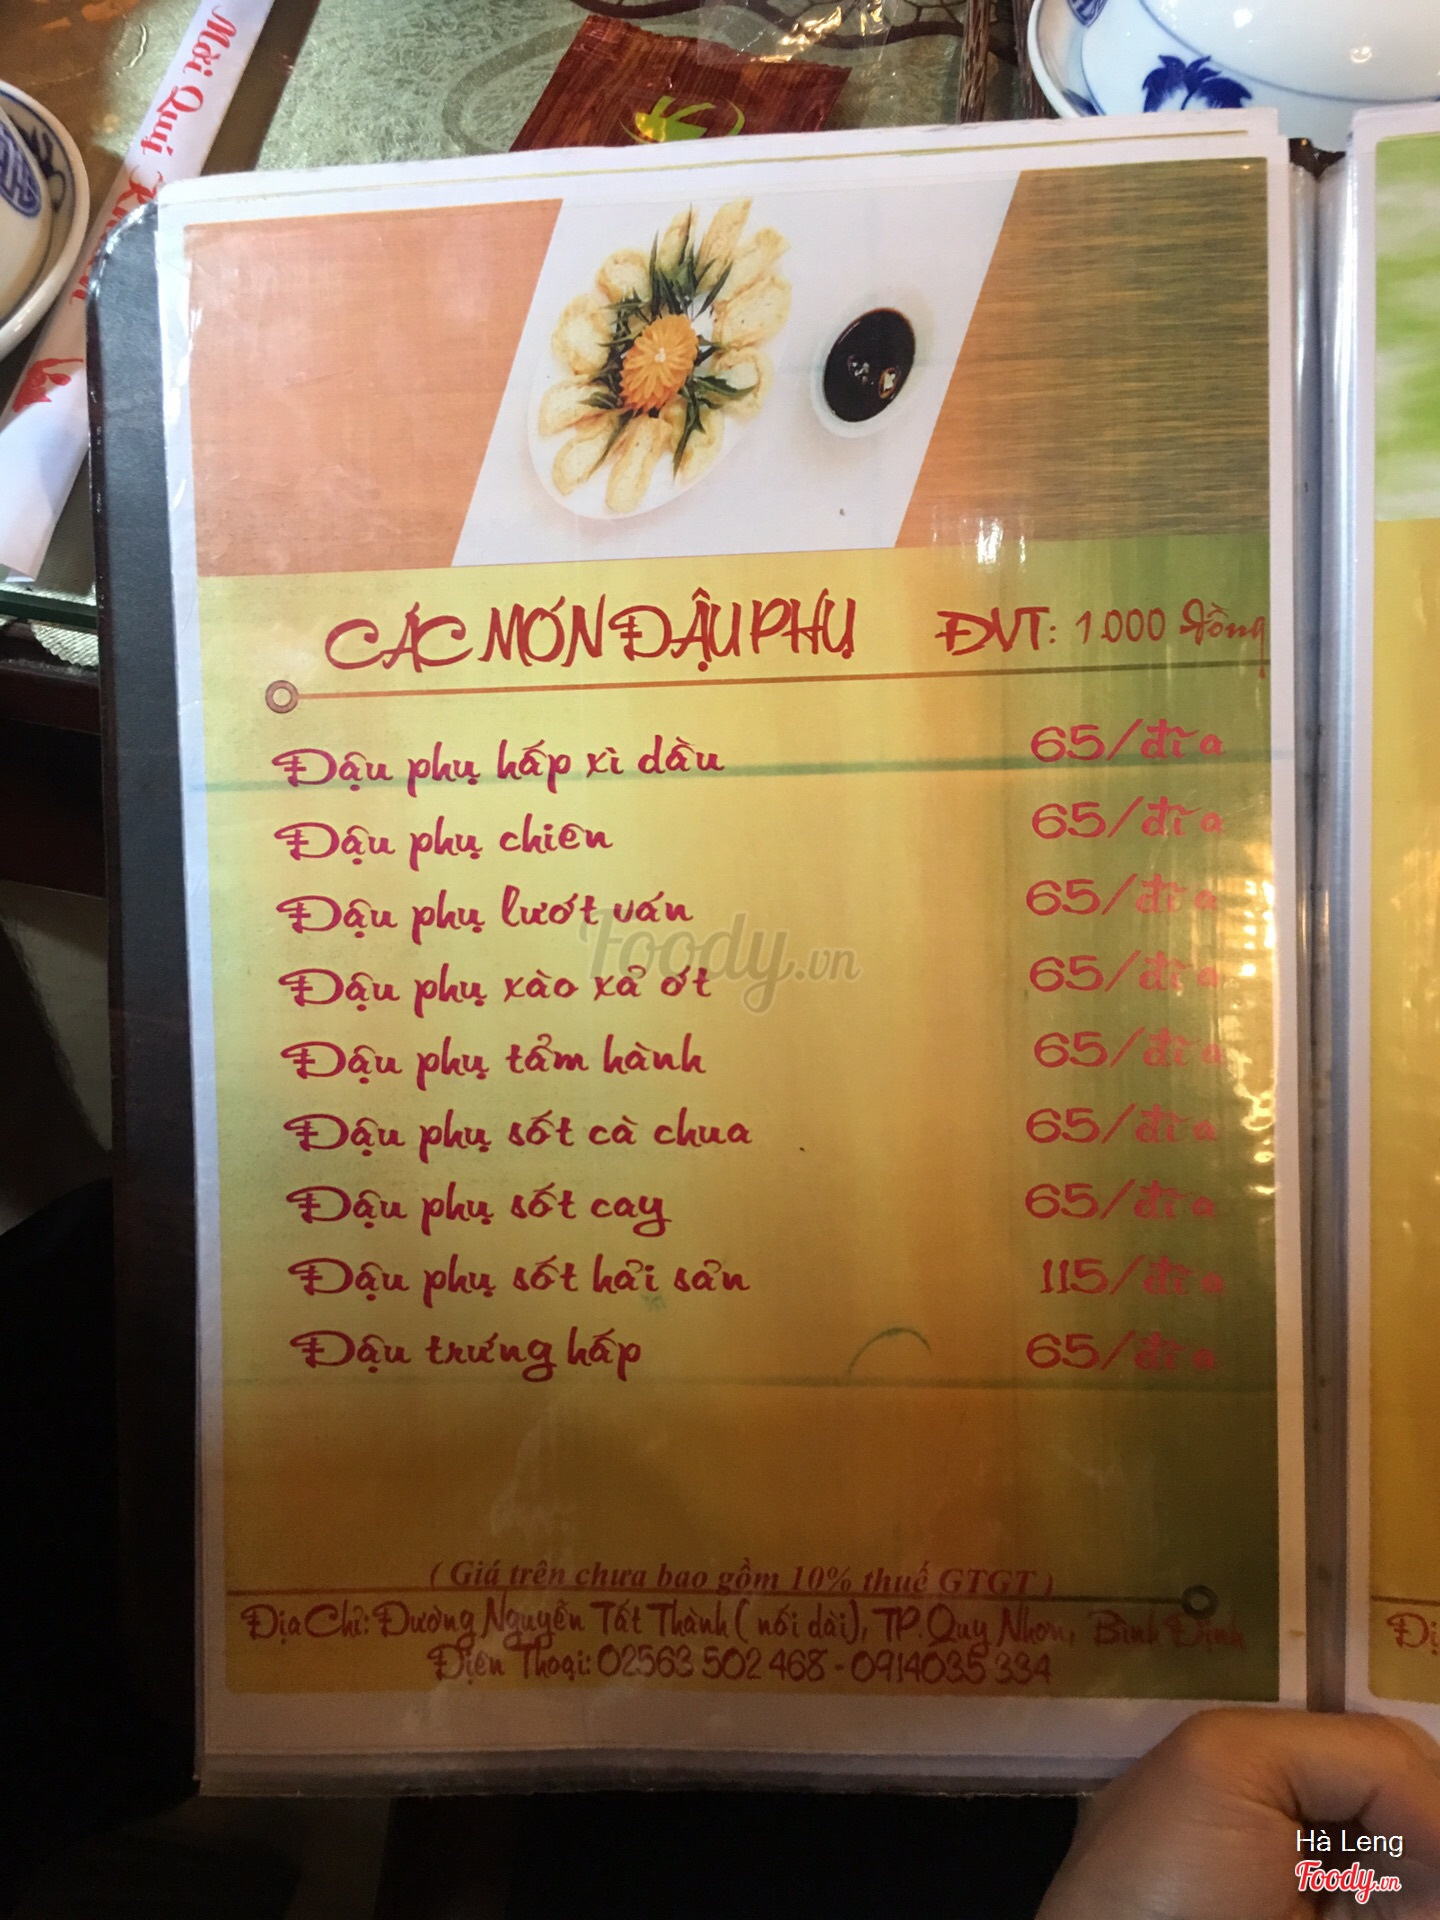 Mời Quý Khách
CÁC MÓN ĐẬU PHỤ ĐVT: 1.000 đồng
Đậu phụ hấp xì dầu 65/đĩa
Đậu phụ chiên 65/đĩa
Đậu phụ lướt ván 65/đĩa
Đậu phụ xào xả ớt 65/đĩa
Đậu phụ tẩm hành 65/đĩa
Đậu phụ sốt cà chua 65/đĩa
Đậu phụ sốt cay 65/đĩa
Đậu phụ sốt hải sản 115/đĩa
Đậu trứng hấp 65/đĩa
Foody.vn
( Giá trên chưa bao gồm 10% thuế GTGT )
Địa Chỉ: Đường Nguyễn Tất Thành ( nối dài), TP. Quy Nhơn, Bình Định
Điện Thoại: 02563 502 468 - 0914035 334
Hà Leng
Foody.vn